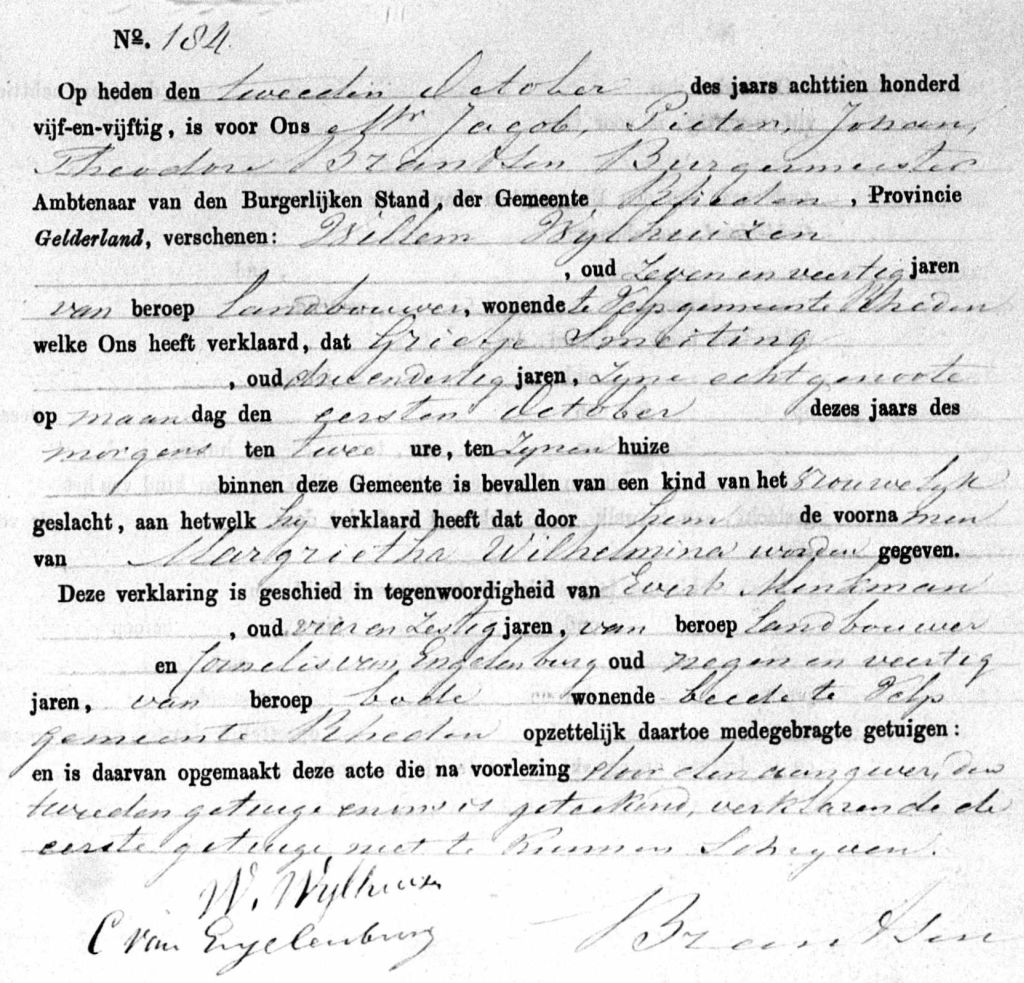 Nº. 184.
Op heden den tweeden October des jaars achttien honderd
vijf-en-vijftig, is voor Ons Mr Jacob, Pieter, Johan,
Theodore Brantsen Burgemeester
Ambtenaar van den Burgerlijken Stand, der Gemeente Rheden, Provincie
Gelderland, verschenen: Willem Wylhuizen
, oud zeven en veertig jaren
van beroep landbouwer, wonende te Velp gemeente Rheden
welke Ons heeft verklaard, dat Grietje Smeeting
, oud drie en dertig jaren, zyne echtgenoote
op maandag den eersten October dezes jaars des
morgens ten twee ure, ten zynen huize
binnen deze Gemeente is bevallen van een kind van het vrouwelyk
geslacht, aan hetwelk hy verklaard heeft dat door hem de voornamen
van Margrietha Wilhelmina worden gegeven.
Deze verklaring is geschied in tegenwoordigheid van Evert Menkman
, oud vier en zestig jaren, van beroep landbouwer
en Cornelis van Engelenburg oud negen en veertig
jaren, van beroep bode wonende beide te Velp
gemeente Rheden opzettelijk daartoe medegebragte getuigen:
en is daarvan opgemaakt deze acte die na voorlezing door den aangever, den
tweeden getuige en ons is geteekend, verklarende de
eerste getuige niet te kunnen schryven.
W. Wylhuizen
C van Engelenburg
Brantsen